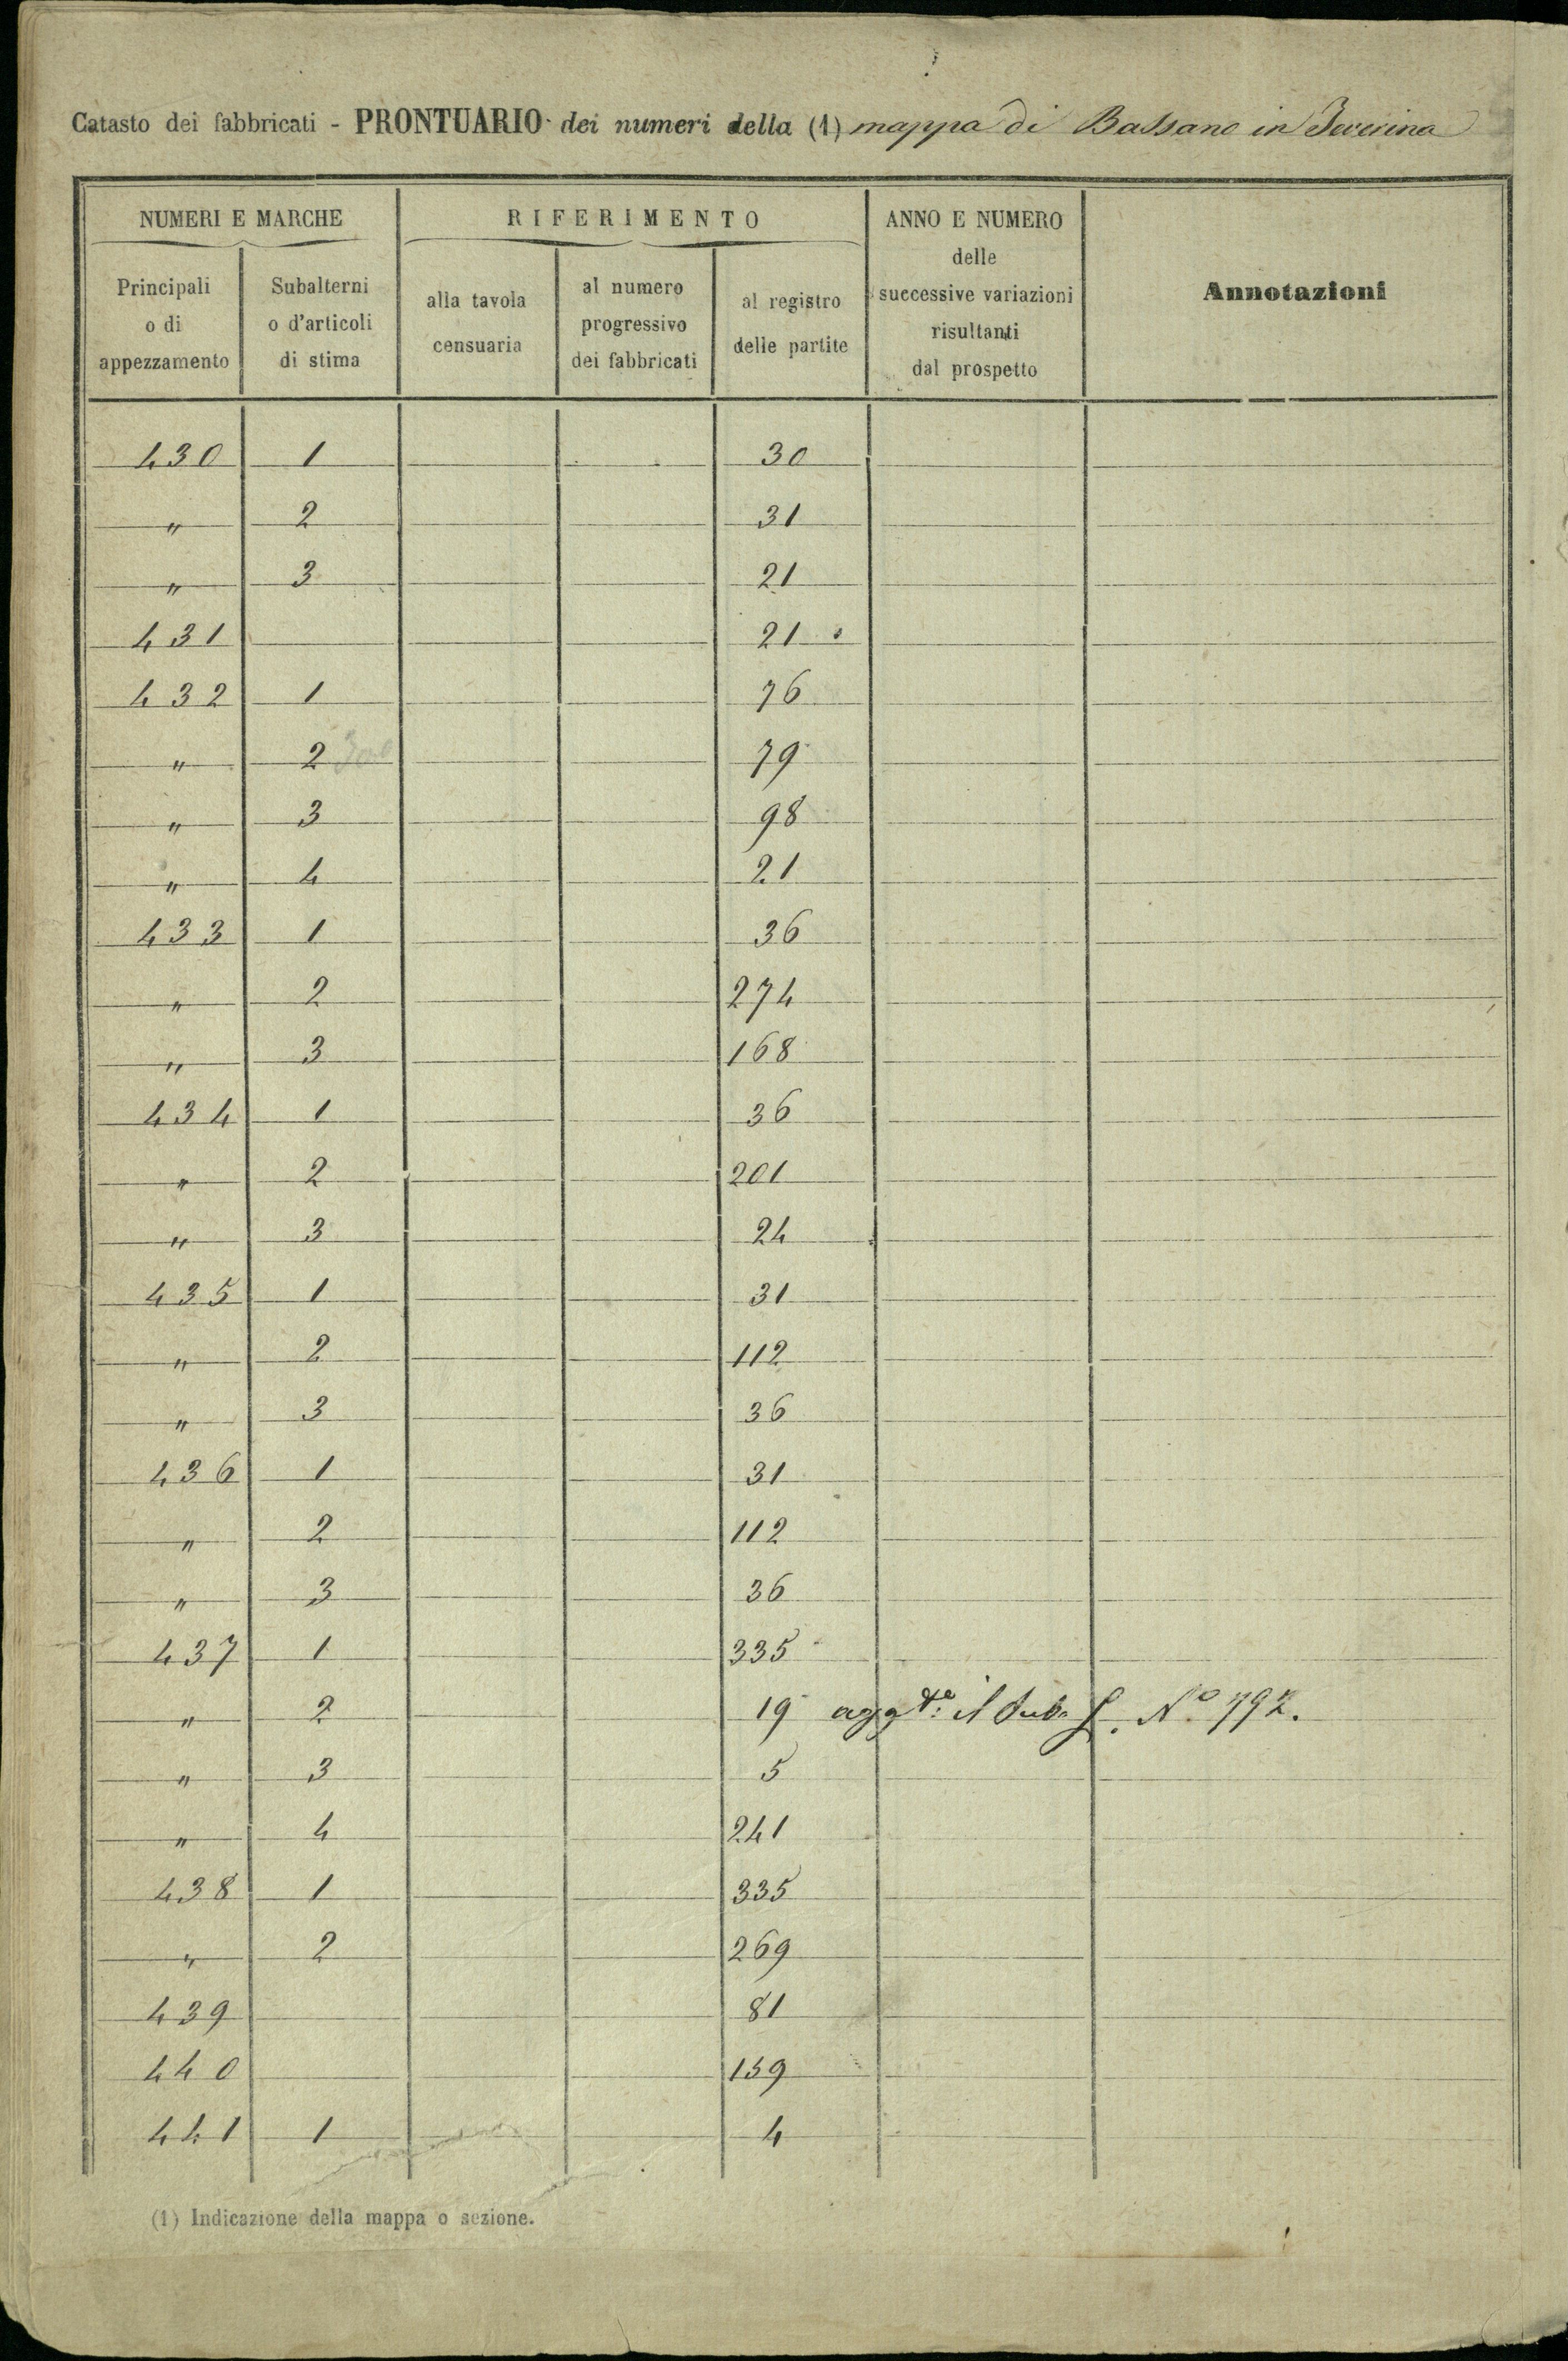 Catasto dei fabbricati - PRONTUARIO dei numeri della (1) mappa di Bassano in Teverina
NUMERI E MARCHE
RIFERIMENTO
ANNO E NUMERO
delle
successive variazioni
risultanti
dal prospetto
Annotazioni
Principali
o di
appezzamento
Subalterni
o d'articoli
di stima
alla tavola
censuaria
al numero
progressivo
dei fabbricati
al registro
delle partite
430 1 30
" 2 31
" 3 21
431 21
432 1 76
" 2 79
" 3 98
" 4 21
433 1 36
" 2 274
" 3 168
434 1 36
" 2 201
" 3 24
435 1 31
" 2 112
" 3 36
436 1 31
" 2 112
" 3 36
437 1 335
" 2 19 aggto: il sub. N.º 792.
" 3 5
" 4 241
438 1 335
" 2 269
439 81
440 159
441 1 4
(1) Indicazione della mappa o sezione.